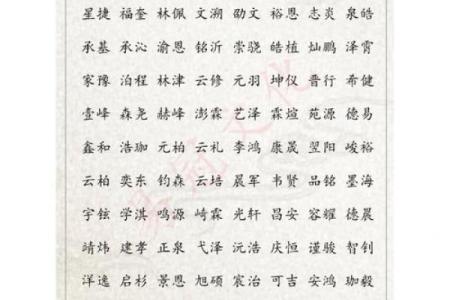 星捷 福奎 林佩 文溯 劭文 裕恩 志炎 泉皓
承基 承沁 渝恩 铭沂 崇骁 皓植 灿鹏 泽霄
家豫 泊程 林津 云修 元羽 坤仪 晋行 希健
壹峰 森尧 赫峰 澎霖 艺泽 霖煊 苑源 德易
鑫和 浩珈 元柏 云礼 李鸿 康晟 翌阳 峻裕
云柏 奕东 钧森 云培 晨军 韦贤 品铭 墨海
宇铉 学淇 鸣源 崎霖 光轩 昌安 容耀 德晨
靖炜 建孝 正泉 弋泽 沅浩 庆恒 谨骏 智钊
洋逸 启杉 景恩 旭硕 宸治 可吉 安鸿 珈毅